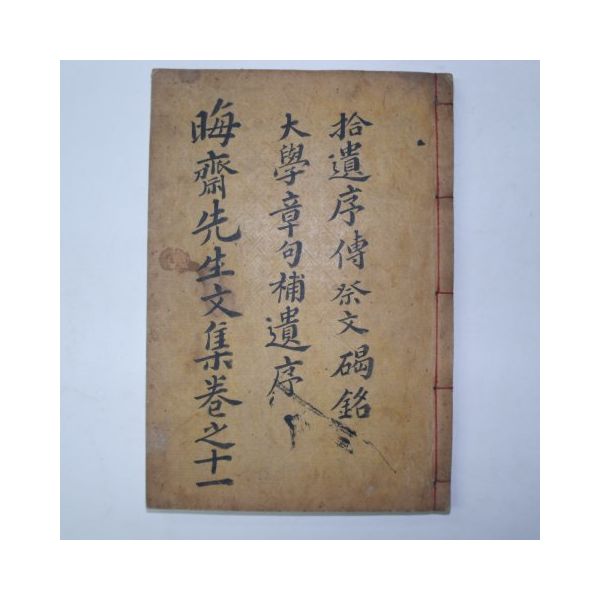 拾遺序傳祭文碣銘
大學章句補遺序
晦齋先生文集卷之十一